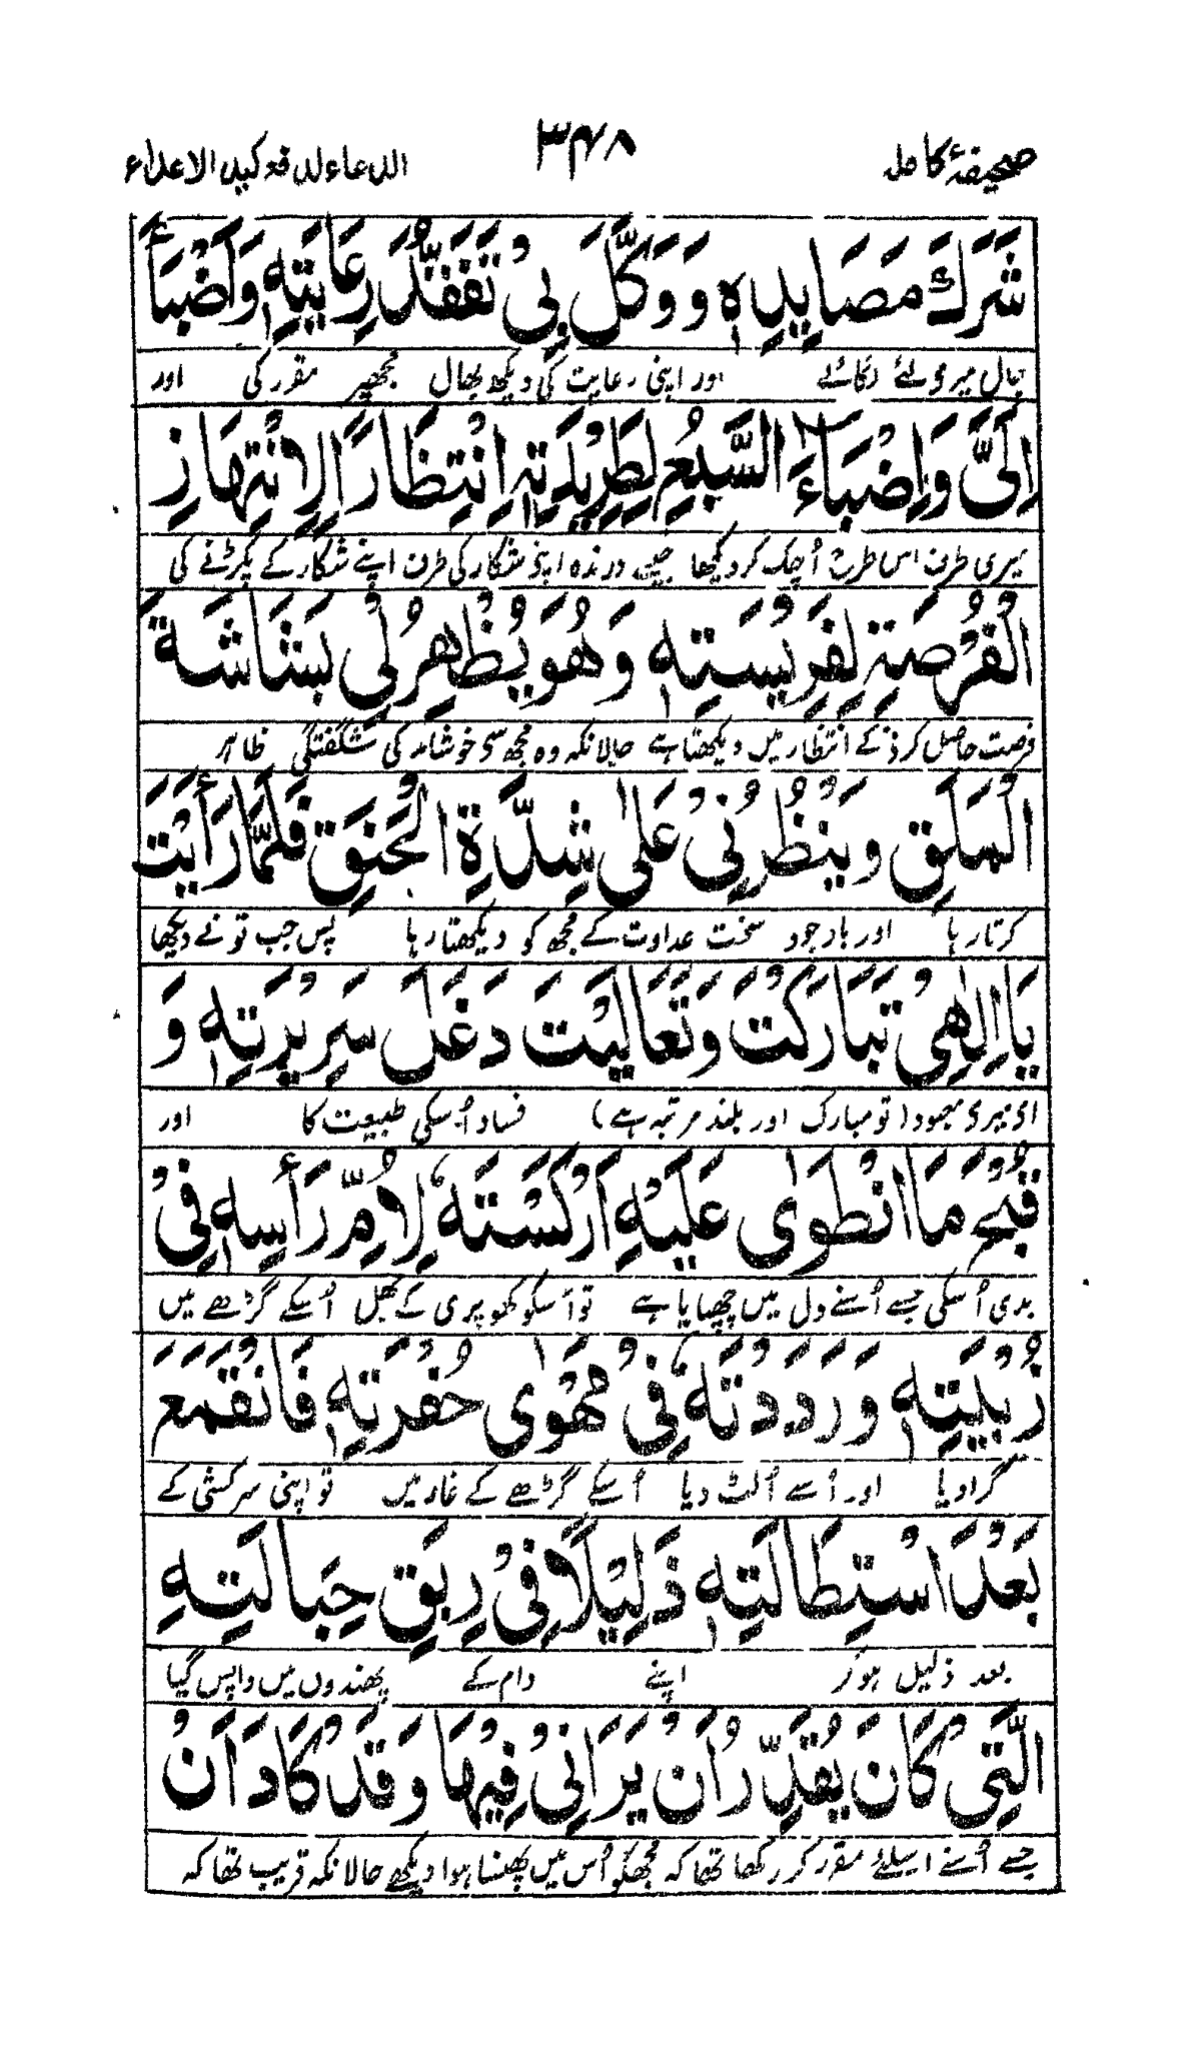 صحیفۂ کاملہ ۳۴۸ الدعاء لدفع کید الاعداء
شَرَكَ مَصَايِدِهٖ وَ وَكَّلَ بِيْ تَفَقُّدَ رِعَايَتِهٖ وَاَضْبَأَ
جال میرے لئے لگائے اور اپنی رعایت کی دیکھ بھال مجھپر مقرر کی اور
اِلَيَّ وَاِضْبَاءَ السَّبُعِ لِطَرِيْدَتِهٖ اِنْتِظَارًا لِاِنْتِهَازِ
میری طرف اس طرح اُچک کر دیکھا جیسے درندہ اپنے شکار کی طرف اپنے شکار کے پکڑنے کی
الْفُرْصَةِ لِفَرِيْسَتِهٖ وَهُوَ يُظْهِرُ لِيْ بَشَاشَةَ
فرصت حاصل کرنے کے انتظار میں دیکھتا ہے حالانکہ وہ مجھ سے خوشامد کی شگفتگی ظاہر
الْمَلَقِ وَيَنْظُرُنِيْ عَلٰى شِدَّةِ الْحَنَقِ فَلَمَّا رَأَيْتَ
کرتا رہا اور باوجود سخت عداوت کے مجھ کو دیکھتا رہا پس جب تو نے دیکھا
يَا اِلٰهِيْ تَبَارَكْتَ وَتَعَالَيْتَ دَغَلَ سَرِيْرَتِهٖ وَ
اے میرے معبود (تو مبارک اور بلند مرتبہ ہے) فساد اُسکی طبیعت کا اور
قُبْحَ مَا انْطَوٰى عَلَيْهِ اَرْكَسْتَهٗ لِاُمِّ رَأْسِهٖ فِيْ
بدی اُسکی جسے اُسنے دل میں چھپایا ہے تو اُسکو کھوپری کے بھل اُسکے گڑھے میں
زُبْيَتِهٖ وَرَدَدْتَهٗ فِيْ مَهْوٰى حُفْرَتِهٖ فَانْقَمَعَ
گرا دیا اور اُسے اُلٹ دیا اُسکے گڑھے کے غار میں تو اپنی سرکشی کے
بَعْدَ اسْتِطَالَتِهٖ ذَلِيْلًا فِيْ رِبَقِ حِبَالَتِهِ
بعد ذلیل ہوکر اپنے دام کے پھندوں میں واپس گیا
الَّتِيْ كَانَ يُقَدِّرُ اَنْ يَرَانِيْ فِيْهَا وَقَدْ كَادَ اَنْ
جسے اُسنے اسلئے مقرر کر رکھا تھا کہ مجھکو اُس میں پھنسا ہوا دیکھے حالانکہ قریب تھا کہ